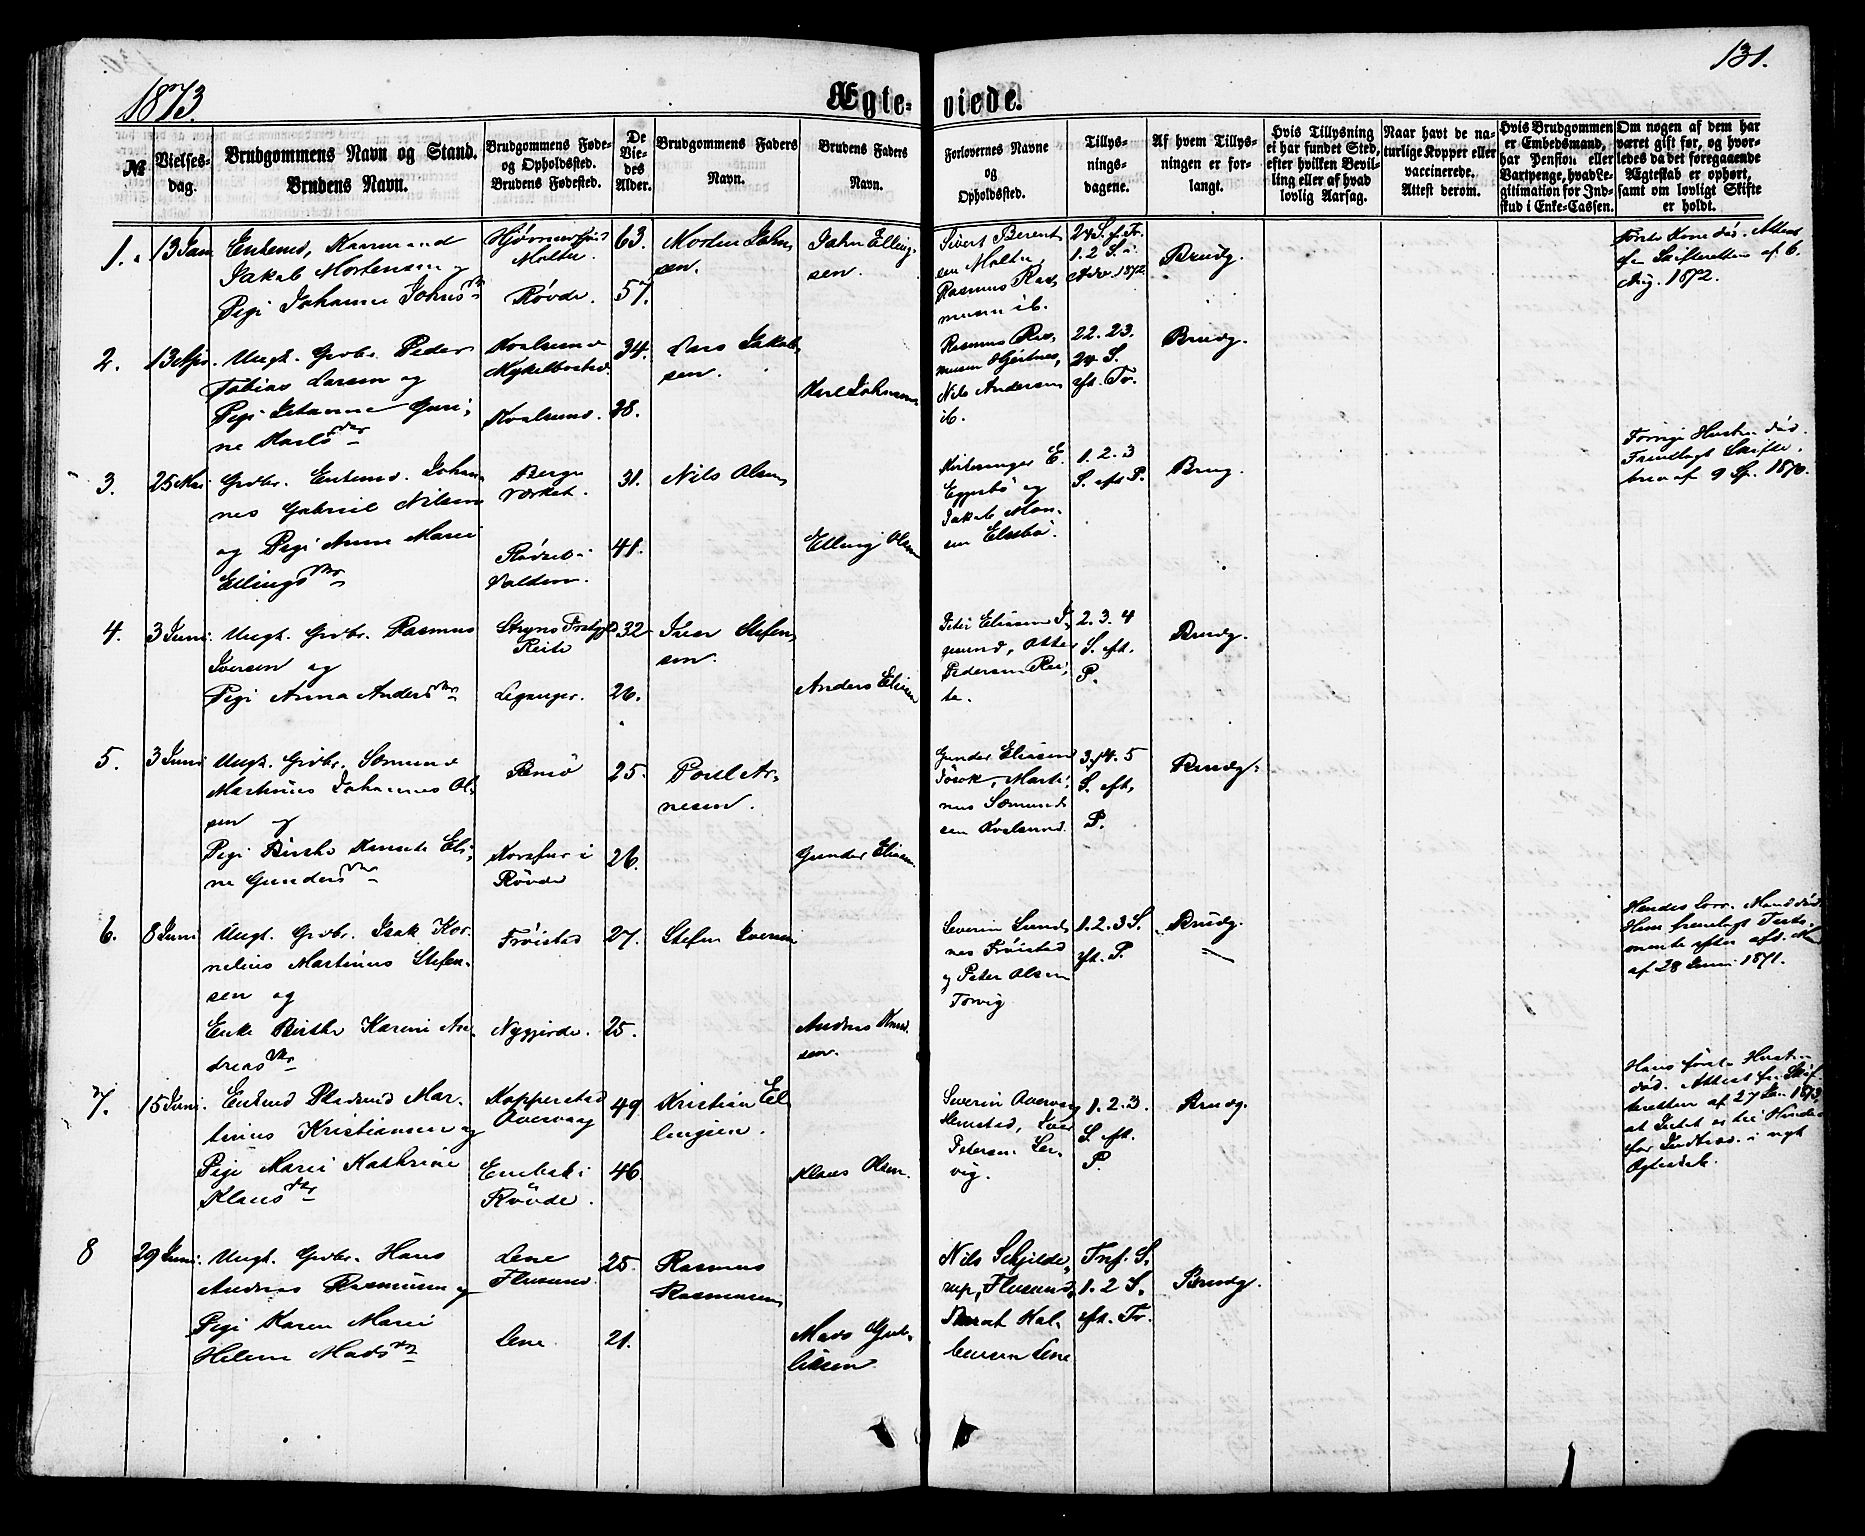 1873.
Ægte-
viede.
131.
No
Vielses-
dag.
Brudgommens Navn og Stand.
Brudens Navn.
Brudgommens Føde-
og Opholdsted.
Brudens Fødested.
De
Vie-
des
Alder.
Brudgommens Faders
Navn.
Brudens Faders
Navn.
Forlovernes Navne
og
Opholdssted.
Tillys-
nings-
dagene.
Af hvem Tillys-
ningen er for-
langt.
Hvis Tillysning
ei har fundet Sted,
efter hvilken Bevil-
ling eller af hvad
lovlig Aarsag.
Naar havt de na-
turlige Kopper eller
vaccinerede.
Attest derom.
Hvis Brudgommen
er Embedsmand,
har Pension eller
Vartpenge, hvad Le-
gitimation for Ind-
skud i Enke-Cassen.
Om nogen af dem har
været gift før, og hvor-
ledes da det foregaaende
Ægteskab er ophørt,
samt om lovligt Skifte
er holdt.
1.
13 Jan
Enkemd, Kaarmand
Jakob Mortensen og
Pige Johanne Johnsdtr
Moltu.
Røvde.
63.
57.
Morten John,
sen.
John Elling,
sen.
Sivert Berent
sen Moltu,
Rasmus Ras,
musen ib.
24 S. ef. Tr.
1. 2 S. i
Adv. 1872
Brudg.
Første Kone død. Attest
fra Skifteretten af 6.
Aug. 1872.
2.
13 Apr.
Ungk. Grbr. Peder
Tobias Larsen og
Pige Johanne Guri,
ne Karlsdtr
Kvalsund
Myklebostad
Kvalsund.
34.
38.
Lars Jakob,
sen.
Karl Johnsen
Rasmus Ras,
musen Gjertnes,
Nils Andersen
ib.
22. 23.
24 S.
eft. Tr.
Brudg.
3.
25 Mai
Grbr. Enkemd. Johan,
nes Gabriel Nilsen
og Pige Anne Marie
Ellingsdtr
Berge
Rødset i
Volden.
31.
41.
Nils Olsen
Elling Olsen
Kirkesanger E.
Eggesbø og
Jakob Mon,
sen
1. 2. 3
S. eft P.
Brug.
Forrige Hustru død.
Fremlagt Skifte,
brev af 9 Sp. 1870.
4.
3 Juni.
Ungk. Grbr. Rasmus
Iversen og
Pige Anna Andersdtr
Stryns Prstgjd
Reite
Leganger.
32
26.
Iver Stefen,
sen.
Anders Eliasen
Peter Eliasen I,
gesund, Otter
Pedersen Rei,
te.
2. 3. 4
S. eft.
P.
Brudg.
5.
3 Juni
Ungk. Grbr. Sæmund
Martinus Johannes Ol,
sen og
Pige Birthe Knude Eli,
ne Gundersdtr
Remø
i
Røvde
25.
26.
Poul Ar,
nesen.
Gunder Eliasen
Gunder Eliasen
Jøsok, Marti,
nus Sæmund
sen Kvalsund.
3. 4. 5
S. eft,
P.
Brudg.
6.
8 Juni
Ungk. Grbr. Isak Kor,
nelius Martinus Stefen,
sen og
Enke Birthe Karine An,
dreasdtr
Frøistad
Nygjerde.
27.
25.
Stefen Iversen
Andreas Knud,
sen.
Severin Sund,
nes Frøistad
og Peter Olsen
Torvig
1. 2. 3 S.
eft. P.
Brudg.
Hendes forr. Mand død.
Hun fremlagt Testa,
mente efter afd. Md
af 28 Juni 1871.
7.
15 Juni.
Enkemd Pladsmd Mar,
tinus Kristiansen og
Pige Marie Kathrine
Klausdtr
Kopperstad
Overvaag
i
Røvde.
49
46
Kristian El
lingsen.
Klaus Olsen.
Severin Overvaag
Iver
Petersen Ler,
vig.
1. 2. 3.
S. eft.
P.
Brudg.
Hans første Hustru
død. Attest fra Skif
teretten af 27 Jan. 1873,
at Intet er til Hinder
for Indtræd. i nyt
Ægteskab.
8
29 Juni.
Ungk. Grbr. Hans
Andreas Rasmusen og
Pige Karen Marie
Helene Madsdtr
Lene
Flusund.
Lene.
25.
21.
Rasmus
Rasmusen
Mads Gud,
liksen.
Nils Schjelde,
rup, Flusund,
Bernt Kal,
leursen Lene
Tref. S.
1. 2 S.
eft. Tr.
Brudg.